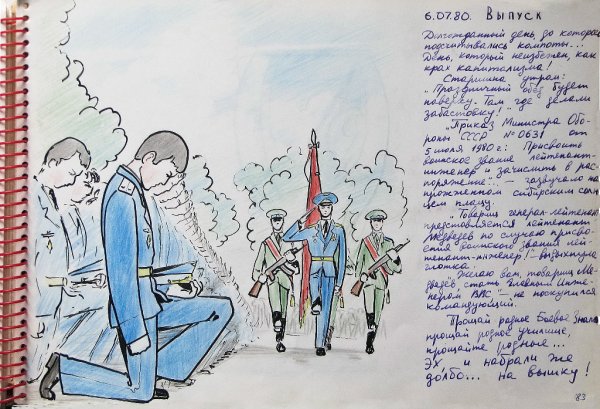 6.07.80. Выпуск
Долгожданный день, до которого
подсчитывались компоты...
День, который неизбежен, как
крах капитализма!
Старшина утром:
„Праздничный обед будет
наверху. Там, где делали
забастовку!"
„Приказ Министра Обо-
роны СССР №0631 от
5 июля 1980 г: Присвоить
воинское звание лейтенант-
инженер и зачислить в рас-
поряжение..." зазвучало на
прожженном сибирским солн
цем плацу.
„Товарищ генерал-лейтенант
представляется лейтенант
Медведев по случаю присво-
ения воинского звания лей
тенант-инженер!" - выдохнула
глотка.
„Желаю вам, товарищ Ме-
дведев, стать главным Инже-
нером ВВС" - не поскупился
командующий.
Прощай родное Боевое Знамя
прощай родное училище,
прощайте родные...
Эх и набрали же
долбо... на вышку!
'83